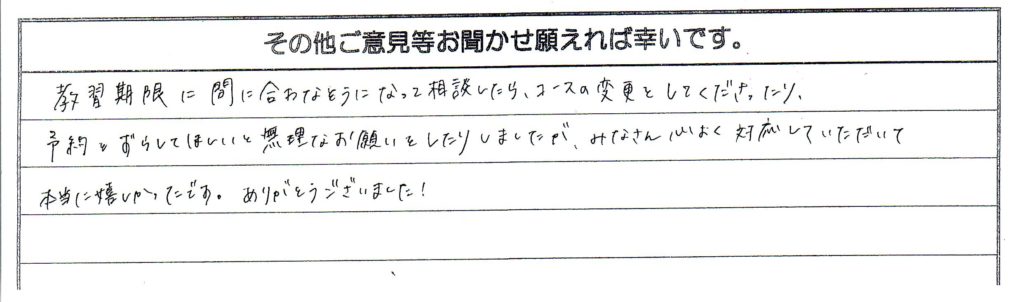 その他ご意見等お聞かせ願えれば幸いです。
教習期限に間に合わなそうになって相談したら、コースの変更をしてくださったり、
予約をずらしてほしいと無理なお願いをしたりしましたが、みなさん心よく対応していただいて
本当に嬉しかったです。ありがとうございました!